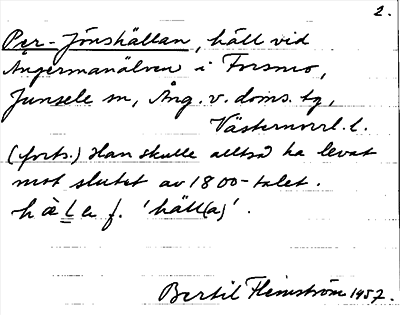 2.
Per-Jönshällan, häll vid
Ångermanälven i Forsmo,
Junsele sn, Ång. v. doms. tg,
Västernorrl. l.
(forts.) Han skulle alltså ha levat
mot slutet av 1800-talet.
f. 'häll(a)'.
Bertil Flemström 1957.